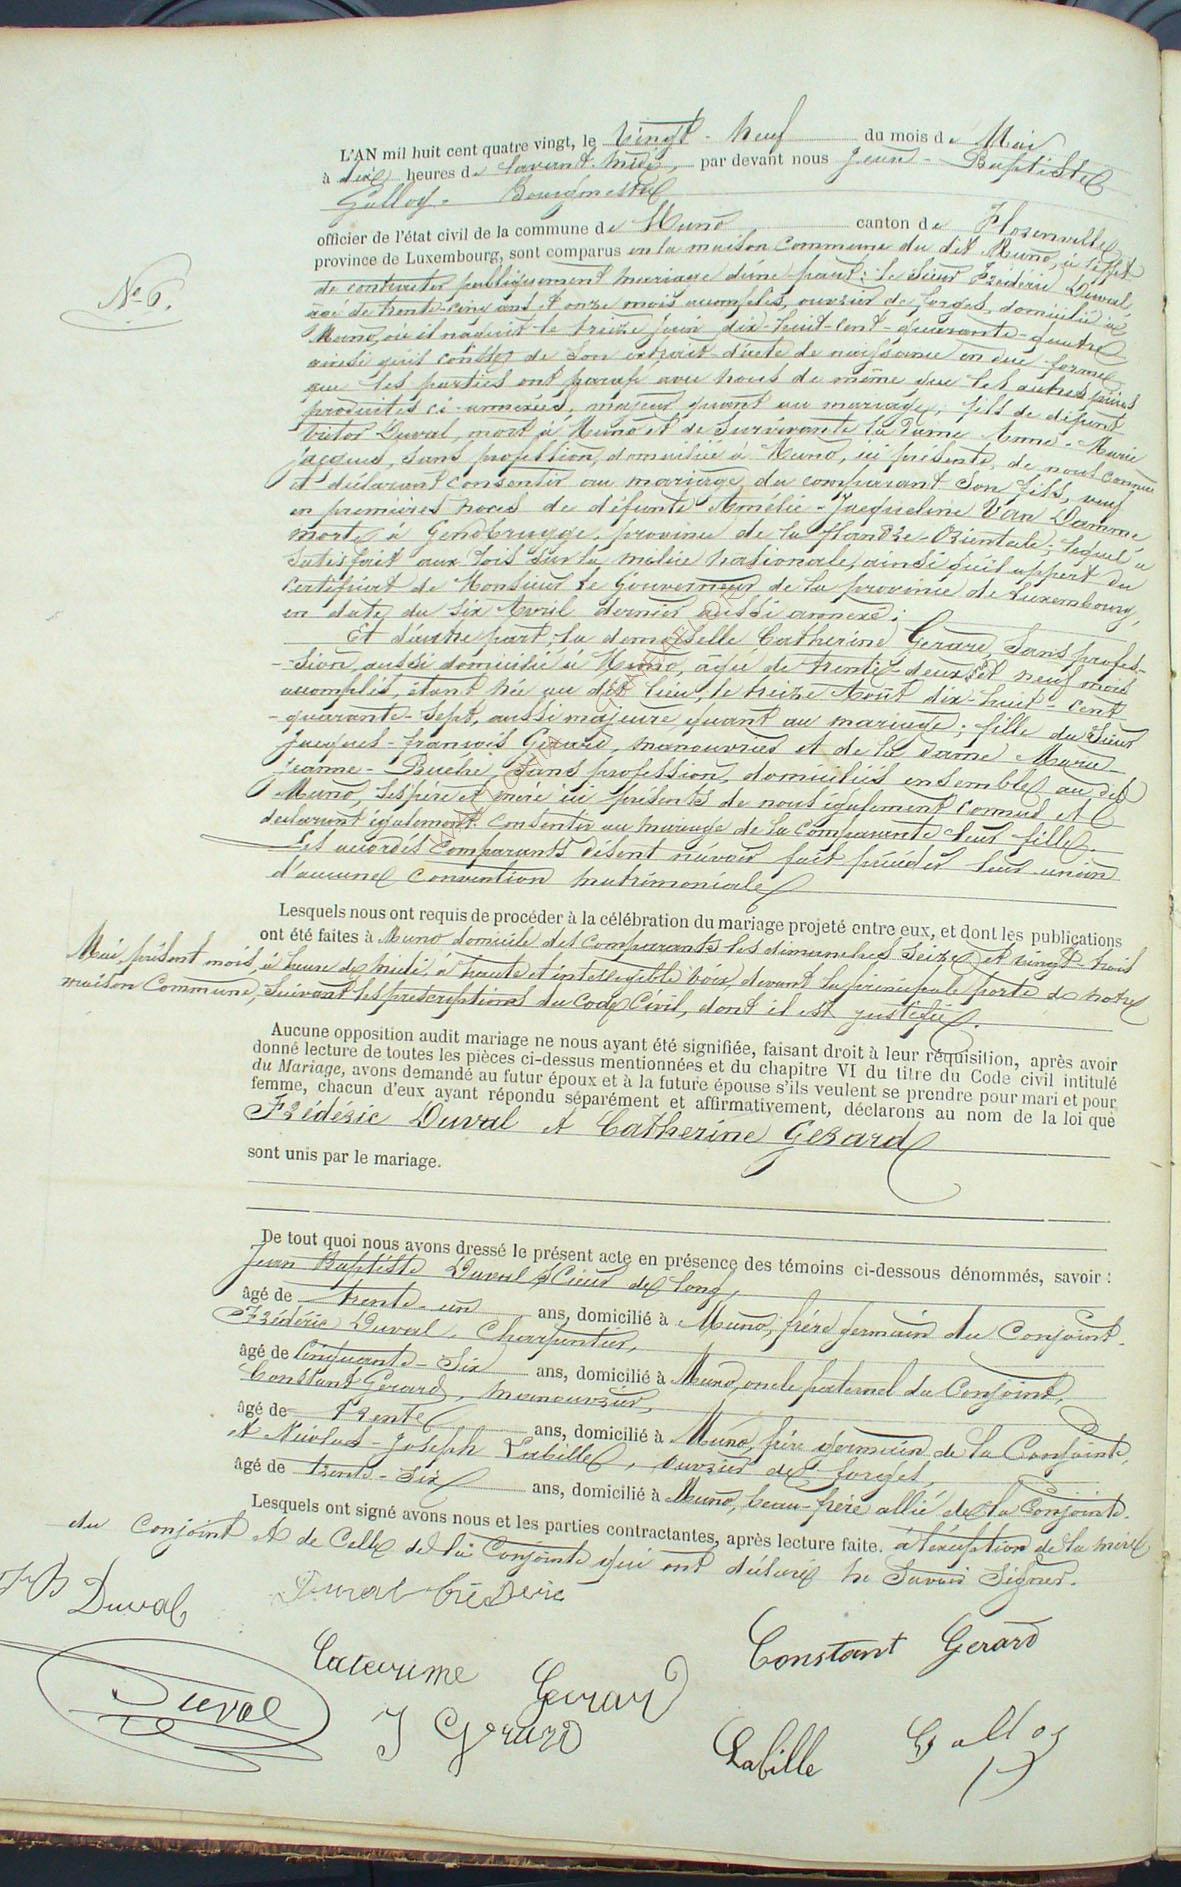 L'AN mil huit cent quatre vingt, le Vingt-neuf du mois de Mai
à dix heures de l'avant-midi, par devant nous Jean-Baptiste
Galloy. Bourgmestre
officier de l'état civil de la commune de Muno canton de Florenville
province de Luxembourg, sont comparus en la maison commune du dit Muno, à l'effet
No 6.
de contracter publiquement mariage d'une part: le Sieur Frédéric Duval,
âgé de trente-cinq ans et onze mois accomplis, ouvrier de forges, domicilié à
Muno, où il naquit le treize Juin dix-huit-cent-quarante-quatre
ainsi qu'il conste de son extrait d'acte de naissance en due forme
que les parties ont parafé avec nous de même que les autres pièces
produites ci-annexées, majeur quant au mariage, fils de défunt
Victor Duval, mort à Muno et de Survivante la Dame Anne-Marie
Jacques, sans profession, domiciliée à Muno, ici présente, de nous connue
et déclarant consentir au mariage du comparant son fils, veuf
en premières noces de défunte Amélie-Jacqueline Van Damme
morte à Gendbrugge, province de la Flandre-Orientale; lequel a
satisfait aux lois sur la milice nationale, ainsi qu'il appert du
certificat de Monsieur le Gouverneur de la province de Luxembourg,
en date du six Avril dernier aussi annexé;
Et d'autre part, la demoiselle Catherine Gerard, Sans profes-
-sion, aussi domiciliée à Muno, âgée de trente-deux ans et neuf mois
accomplis, étant née au dit lieu, le treize Août dix-huit-cent
-quarante-sept, aussi majeure quant au mariage; fille du Sieur
Jacques-François Gerard, manouvrier et de la Dame Marie-
Jeanne-Buche, sans profession, domiciliés ensemble au dit
Muno, ses père et mère ici présents de nous également connus et
déclarant également consentir au mariage de la comparante leur fille.
Les accordés comparants disent n'avoir fait précéder leur union
d'aucune convention matrimoniale
Lesquels nous ont requis de procéder à la célébration du mariage projeté entre eux, et dont les publications
ont été faites à Muno domicile des comparants les dimanches seize et vingt-trois
Mai, présent mois, à heure de Midi, à haute et intelligible voix, devant la principale porte de notre
maison Commune, suivant les prescriptions du Code Civil, dont il est justifié.
Aucune opposition audit mariage ne nous ayant été signifiée, faisant droit à leur réquisition, après avoir
donné lecture de toutes les pièces ci-dessus mentionnées et du chapitre VI du titre du Code civil intitulé
du Mariage, avons demandé au futur époux et à la future épouse s'ils veulent se prendre pour mari et pour
femme, chacun d'eux ayant répondu séparément et affirmativement, déclarons au nom de la loi que
Frédéric Duval et Catherine Gerard
sont unis par le mariage.
De tout quoi nous avons dressé le présent acte en présence des témoins ci-dessous dénommés, savoir :
Jean Baptiste Duval Scieur de long,
âgé de trente-un ans, domicilié à Muno, frère germain du Conjoint.
Frédéric Duval, Charpentier,
âgé de Cinquante-Six ans, domicilié à Muno, oncle paternel du Conjoint,
Constant Gerard, manouvrier,
âgé de trente ans, domicilié à Muno, frère germain de la Conjointe,
et Nicolas-Joseph Labille, ouvrier de forges,
âgé de trente-six ans, domicilié à Muno, beau-frère allié de la Conjointe.
Lesquels ont signé avons nous et les parties contractantes, après lecture faite. à l'exception de la mère
du Conjoint et de Celle de la Conjointe qui ont déclaré ne Savoir Signer.
JB Duval
Duval fréderic
Constant Gerard
Caterinne Gerard
Duval
J Gerard
Labille
Galloy